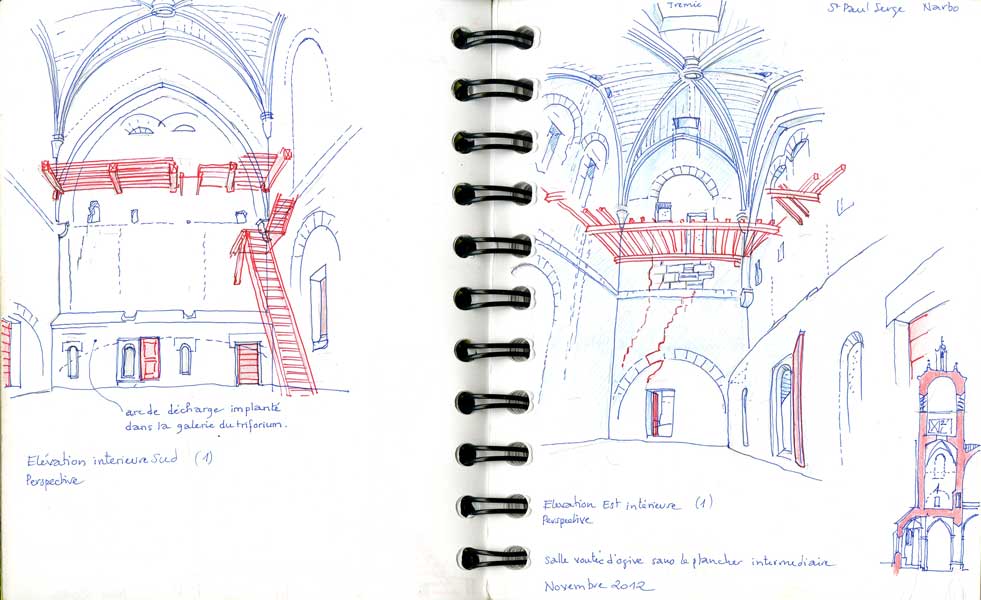 arc de décharge implanté
dans la galerie du triforium.
Elévation interieure Sud (1)
Perspective
Tremie
St Paul Serge Narbo
Elevation Est intérieure (1)
Perspective
Salle voutée d'ogive sans le plancher intermediaire
Novembre 2012